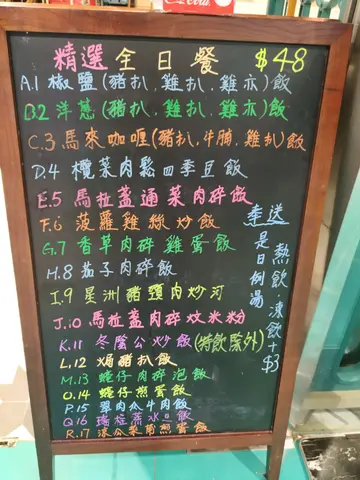 Coca-Cola
精選全日餐 $48
A.1 椒鹽(豬扒.雞扒.雞亦)飯
B.2 洋蔥(豬扒.雞扒.雞亦)飯
C.3 馬來咖喱(豬扒.牛腩.雞亦)飯
D.4 欖菜肉鬆四季豆飯
E.5 馬拉盞通菜肉碎飯
F.6 菠蘿雞絲炒飯
G.7 香草肉碎雞蛋飯
H.8 茄子肉碎飯
I.9 星洲豬頸肉炒河
J.10 馬拉盞肉碎炆米粉
K.11 冬陰公炒飯(特飲除外)
L.12 焗豬扒飯
M.13 蠔仔肉碎泡飯
O.14 蠔仔煎蛋飯
P.15 翠肉瓜牛肉飯
Q.16 瑤柱蒸水旦飯
R.17 涼瓜菜甫煎蛋飯
奉送
是日例湯
熱飲.凍飲+$3